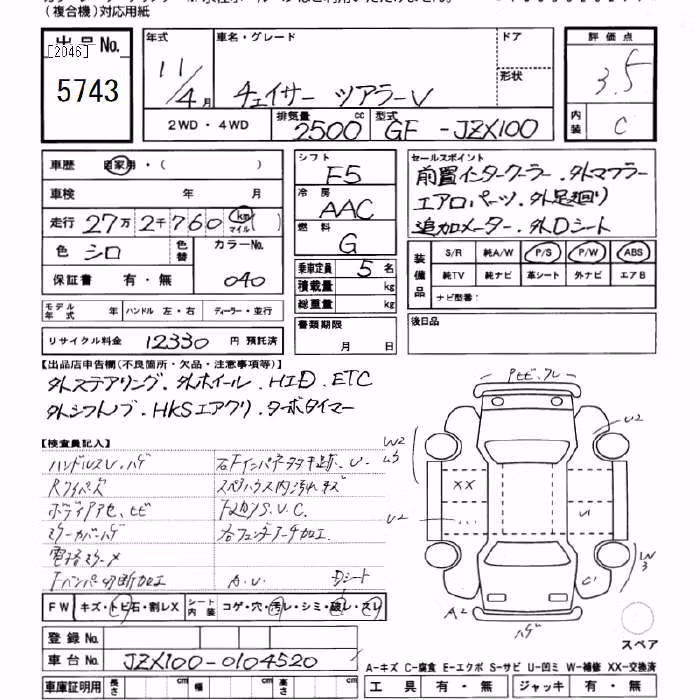 (複合機)対応用紙
出品No.
[2046]
5743
年式 11/4月
車名・グレード チェイサー ツアラーV
ドア
形状
2WD・4WD
排気量 2500 cc
型式 GF-JZX100
評価点 3.5
内装 C
車歴 自家用・( )
車検 年 月
走行 27万2千760 km マイル ( )
色 シロ 色替 カラーNo. 040
保証書 有・無
モデル年式 年 ハンドル 左・右 ディーラー・並行
リサイクル料金 12330 円 預託済
シフト F5
冷房 AAC
燃料 G
乗車定員 5 名
積載量 kg
総重量 kg
書類期限
月 日
セールスポイント
前置インタークーラー.外マフラー
エアロパーツ.外足廻り
追加メーター.外Dシート
装備品
S/R 純A/W P/S P/W ABS
純TV 純ナビ 革シート 外ナビ エアB
ナビ型番:
後日品
【出品店申告欄(不良箇所・欠品・注意事項等)】
外ステアリング.外ホイール.HID.ETC
外シフトノブ.HKSエアクリ.ターボタイマー
【検査員記入】
ハンドルスレ.ハゲ
S.U.C.
右フェンダーアーチ加工
A.U.
Dシート
FW キズ・トビ石・割レX
シート内装 コゲ・穴・汚レ・シミ・破レ・スレ
登録No.
車台No. JZX100-0104520
車庫証明用 長さ cm 幅 cm 高さ cm
XX
U2
U2
U1
C1
A2
W2
W3
ハゲ
スペア
A-キズ C-腐食 E-エクボ S-サビ U-凹ミ W-補修 XX-交換済
工具 有・無 ジャッキ 有・無